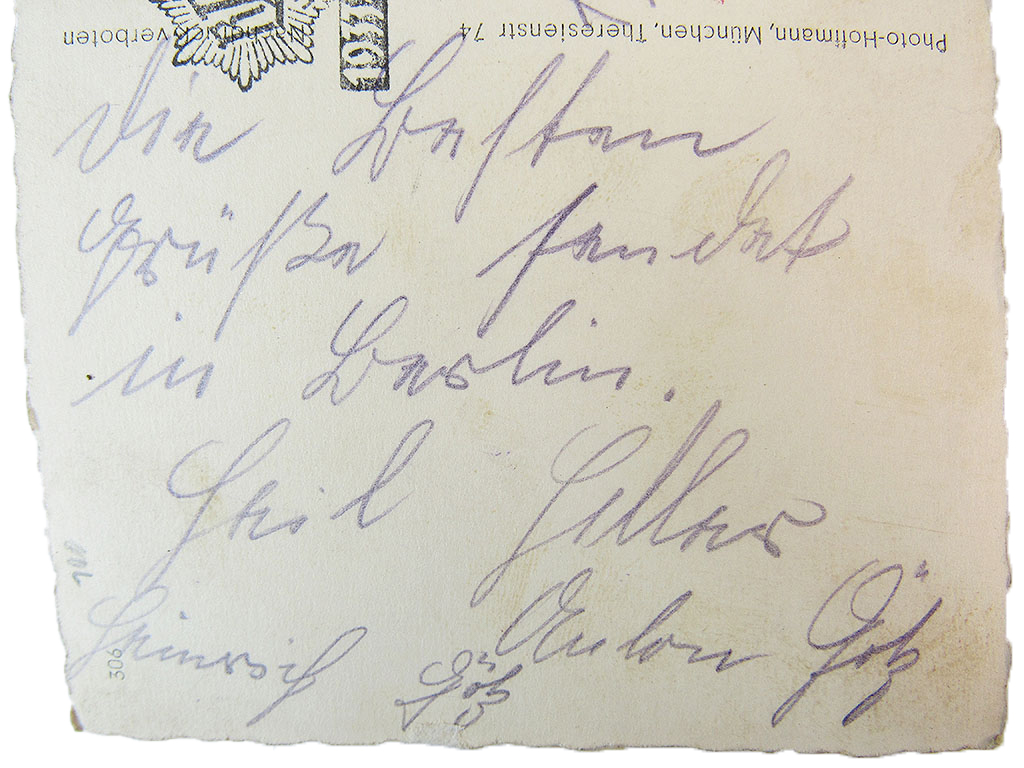 Photo-Hoffmann, München, Theresienstr 74
Nachdruck verboten
Die Besten
Grüße sendet
in Berlin.
Heil Hitler
Heinrich Götz Anton Götz
306